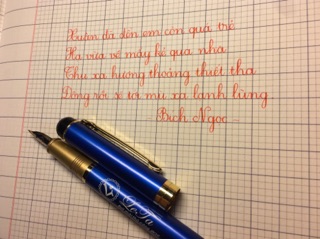 Xuân đã đến em còn quá trẻ
Hạ vừa về mấy kẻ qua nhà
Thu xa hương thoảng thiết tha
Đông rồi sẽ tới mù xa lạnh lùng
Bích Ngọc